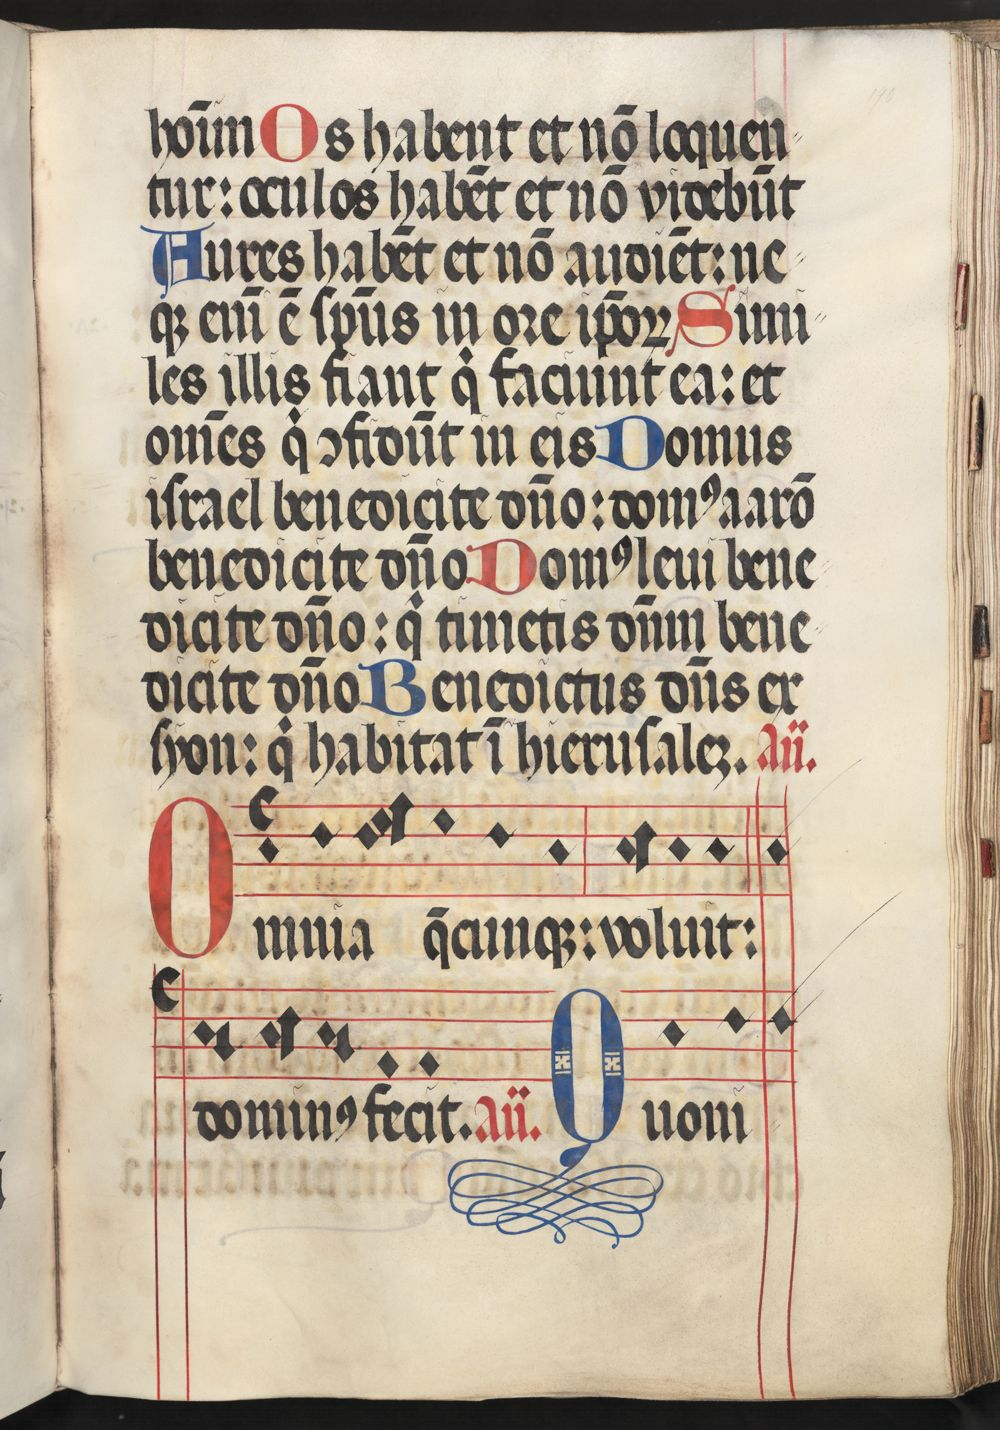 hoīm Os habent et nō loquen
tur: oculos habēt et nō videbūt
Aures habēt et nō audiēt: ne
qꝫ eni̅ ē spūs in ore ip̄oꝝ Simi
les illis fiant q̇ faciunt ea: et
om̄es q̇ ↄfidūt in eis Domus
israel benedicite dn̄o: domꝰ aarō
benedicite dn̄o Domꝰ levi bene
dicite dn̄o: q̇ timetis dn̄m bene
dicite dn̄o Benedictus dn̄s ex
syon: q̇ habitat ī hierusaleꝫ. añ.
Omnia q̄cunqꝫ: voluit:
dominꝰ fecit. añ. Quoni
190